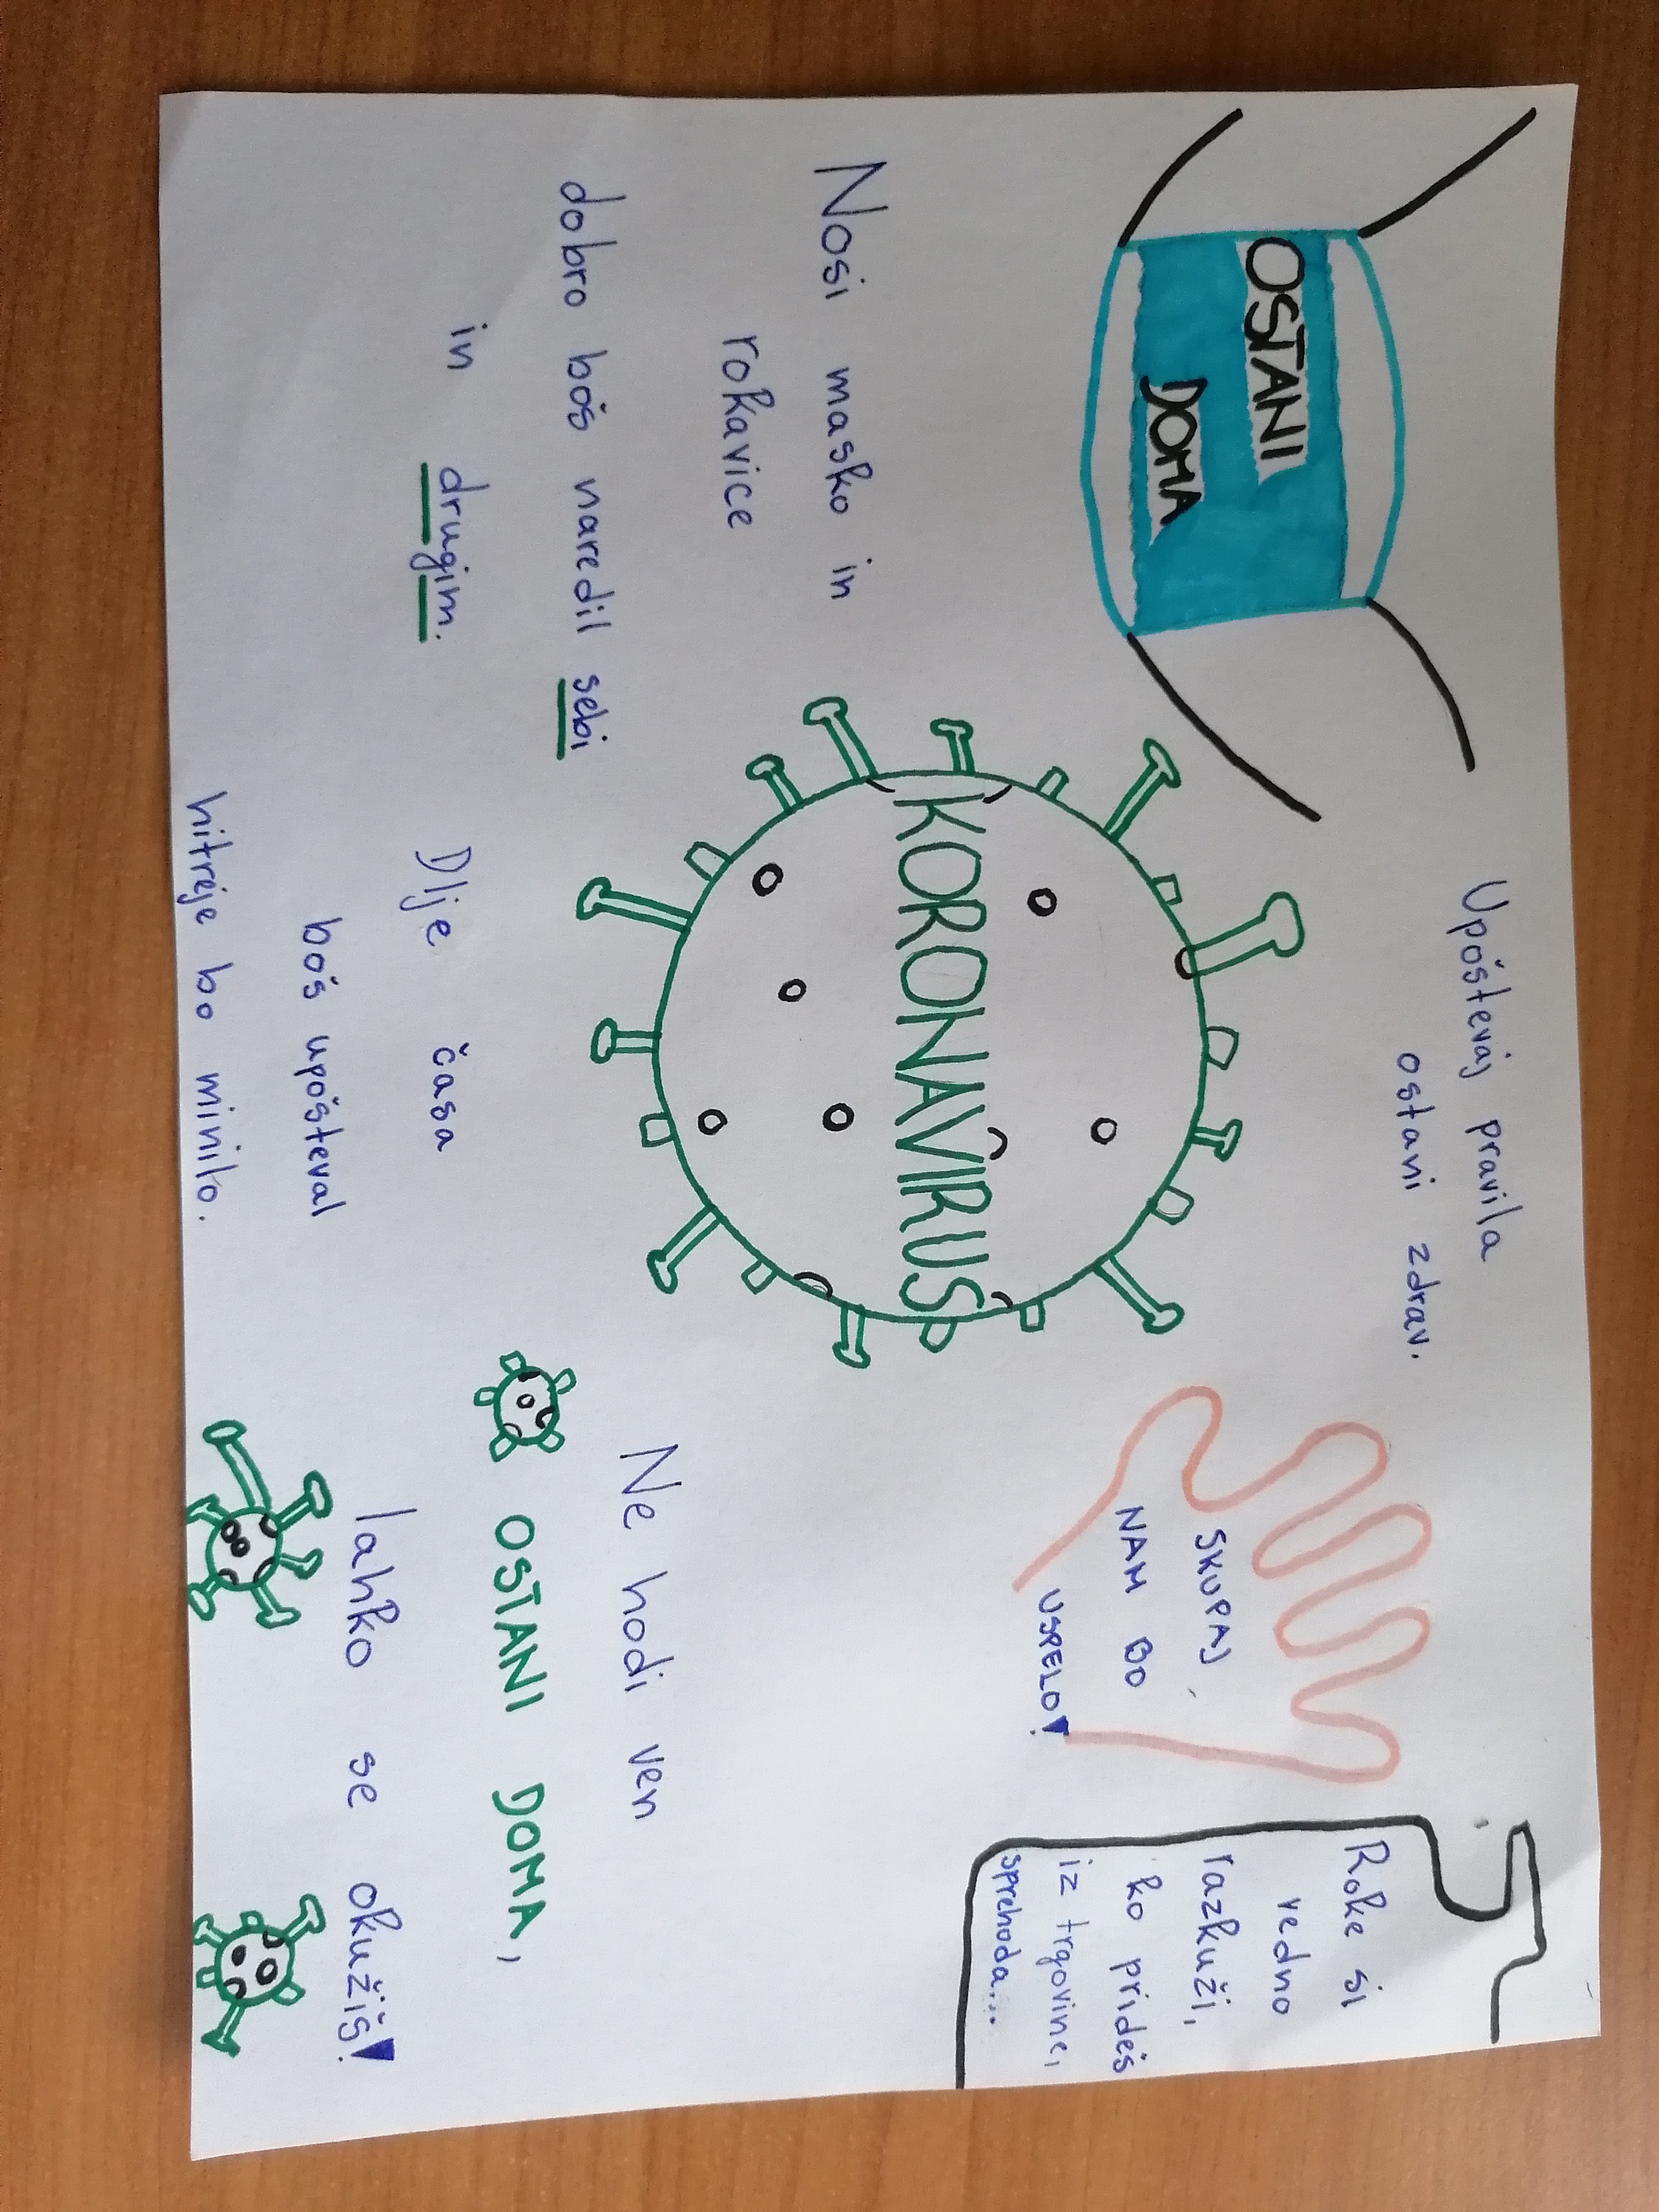 OSTANI
DOMA
Upoštevaj pravila
ostani zdrav.
Nosi masko in
rokavice
dobro boš naredil sebi
in drugim.
KORONAVIRUS
SKUPAJ
NAM BO
USPELO!
Roke si
vedno
razkuži,
ko prideš
iz trgovine,
sprehoda...
Dlje časa
boš upošteval
hitreje bo minilo.
Ne hodi ven
OSTANI DOMA,
lahko se okužiš!